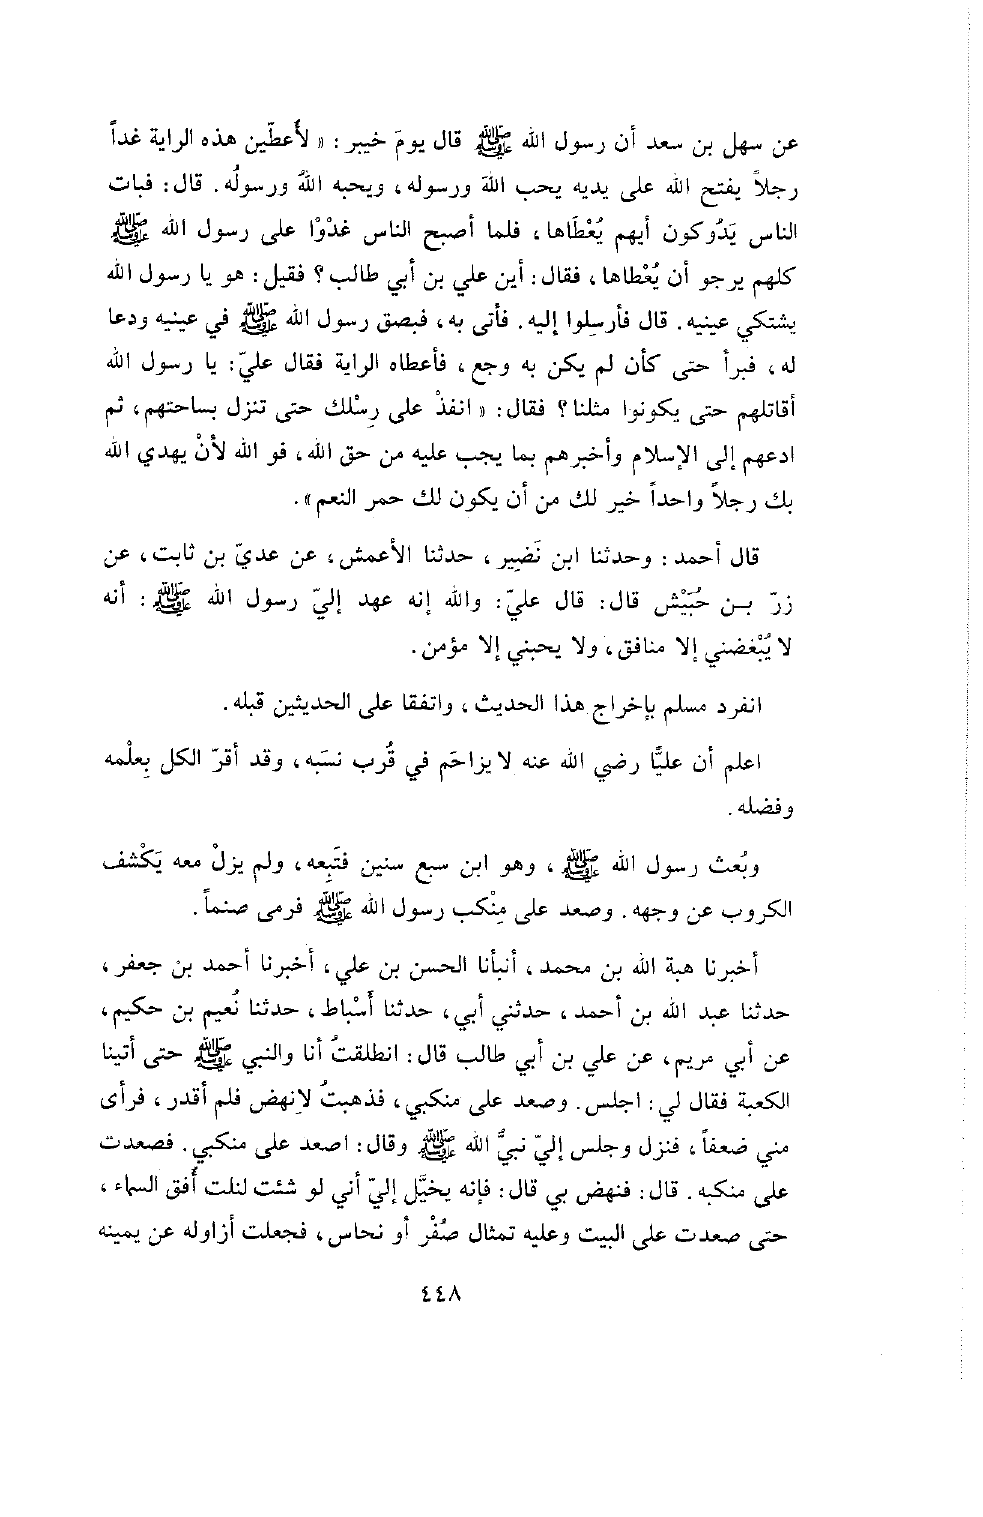 عن سهل بن سعد أن رسول الله ﷺ قال يومَ خيبر : « لأُعطّين هذه الراية غداً
رجلاً يفتح الله على يديه يحب اللهَ ورسوله، ويحبه اللهُ ورسولُه. قال: فبات
الناس يَدُوكون أيهم يُعْطَاها، فلما أصبح الناس غدْوْا على رسول الله ﷺ
كلهم يرجو أن يُعْطاها، فقال: أين علي بن أبي طالب؟ فقيل: هو يا رسول الله
يشتكي عينيه. قال فأرسلوا إليه. فأتى به، فبصق رسول الله ﷺ في عينيه ودعا
له، فبرأ حتى كأن لم يكن به وجع، فأعطاه الراية فقال عليّ: يا رسول الله
أقاتلهم حتى يكونوا مثلنا؟ فقال: « انفذْ على رِسْلك حتى تنزل بساحتهم، ثم
ادعهم إلى الإسلام وأخبرهم بما يجب عليه من حق الله، فو الله لأنْ يهدي الله
بك رجلاً واحداً خير لك من أن يكون لك حمر النعم».
قال أحمد: وحدثنا ابن نَضِير، حدثنا الأعمش، عن عديّ بن ثابت، عن
زرّ بـن حُبَيْش قال: قال عليّ: والله إنه عهد إليّ رسول الله ﷺ: أنه
لا يُبْغضني إلا منافق، ولا يحبني إلا مؤمن.
انفرد مسلم بإخراج هذا الحديث، واتفقا على الحديثين قبله.
اعلم أن عليًّا رضي الله عنه لا يزاحَم في قُرب نسَبه، وقد أقرّ الكل بِعلْمه
وفضله.
وبُعث رسول الله ﷺ، وهو ابن سبع سنين فتَبِعه، ولم يزلْ معه يَكْشف
الكروب عن وجهه. وصعد على مِنْكب رسول الله ﷺ فرمى صنماً.
أخبرنا هبة الله بن محمد، أنبأنا الحسن بن علي، أخبرنا أحمد بن جعفر،
حدثنا عبد الله بن أحمد، حدثني أبي، حدثنا أَسْباط، حدثنا نُعيم بن حكيم،
عن أبي مريم، عن علي بن أبي طالب قال: انطلقتُ أنا والنبي ﷺ حتى أتينا
الكعبة فقال لي: اجلس. وصعد على منكبي، فذهبتُ لانهض فلم أقدر، فرأى
مني ضعفاً، فنزل وجلس إليّ نبيُّ الله ﷺ وقال: اصعد على منكبي. فصعدت
على منكبه. قال: فنهض بي قال: فإنه يخيَّل إليّ أني لو شئت لنلت أُفق السماء،
حتى صعدت على البيت وعليه تمثال صُفْر أو نحاس، فجعلت أزاوله عن يمينه
٤٤٨